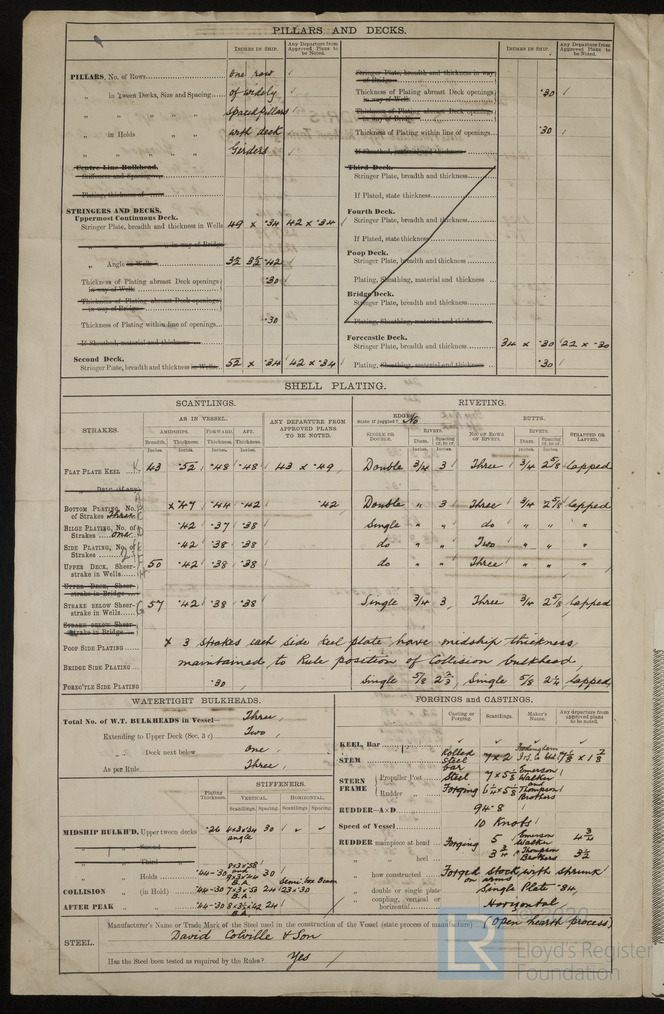 PILLARS AND DECKS.
INCHES IN SHIP.
Any Departure from Approved Plans to be Noted.
PILLARS, No. of Rows
one row
„ in 'tween Decks, Size and Spacing
of widely
spaced pillars
„ in Holds
with deck
Girders
Centre Line Bulkhead.
Stiffeners and Spacing
Plating, thickness of
STRINGERS AND DECKS.
Uppermost Continuous Deck.
Stringer Plate, breadth and thickness in Wells 49 x .34 42 x .34
„ in way of Bridge
„ Angle in Wells 3½ 3½ .42
Thickness of Plating abreast Deck openings in way of Wells .30
Thickness of Plating abreast Deck openings in way of Bridge
Thickness of Plating within line of openings .30
If Sheathed, material and thickness
Second Deck.
Stringer Plate, breadth and thickness in Wells 52 x .34 42 x .34
INCHES IN SHIP.
Any Departure from Approved Plans to be Noted.
Stringer Plate, breadth and thickness in way of Bridge
Thickness of Plating abreast Deck openings in way of Wells .30
Thickness of Plating abreast Deck openings in way of Bridge
Thickness of Plating within line of openings .30
If Sheathed, material and thickness
Third Deck.
Stringer Plate, breadth and thickness
If Plated, state thickness
Fourth Deck.
Stringer Plate, breadth and thickness
If Plated, state thickness
Poop Deck.
Stringer Plate, breadth and thickness
Plating, Sheathing, material and thickness
Bridge Deck.
Stringer Plate, breadth and thickness
Plating, Sheathing, material and thickness
Forecastle Deck.
Stringer Plate, breadth and thickness 34 x .30 22 x .30
Plating, Sheathing, material and thickness .30
SHELL PLATING.
SCANTLINGS.
RIVETING.
STRAKES.
AS IN VESSEL.
ANY DEPARTURE FROM APPROVED PLANS TO BE NOTED.
EDGES
State if joggled? No
BUTTS.
AMIDSHIPS. FORWARD. AFT.
Breadth. Thickness. Thickness. Thickness.
SINGLE OR DOUBLE.
RIVETS.
Diam. Spacing cr. to cr.
No. OF ROWS OF RIVETS.
RIVETS.
Diam. Spacing cr. to cr.
STRAPPED OR LAPPED.
FLAT PLATE KEEL 43 .52 .48 .48 43 x .49 Double 3/4 3 Three 3/4 2 5/8 lapped
BOTTOM PLATING, No. of Strakes three x .47 .44 .42 .42 Double „ 3 Three 3/4 2 5/8 lapped
BILGE PLATING, No. of Strakes one .42 .37 .38 Single „ „ do „ „ „
SIDE PLATING, No. of Strakes .42 .38 .38 do „ „ Two „ „ „
UPPER DECK, Sheerstrake in Wells 50 .42 .38 .38 do „ „ Three „ „ „
UPPER DECK, Sheerstrake in Bridge
STRAKE BELOW Sheerstrake in Wells 57 .42 .38 .38 Single 3/4 3 Three 3/4 2 5/8 lapped
STRAKE BELOW Sheerstrake in Bridge
POOP SIDE PLATING
x 3 strakes each side keel plate have midship thickness
BRIDGE SIDE PLATING
maintained to Rule position of Collision bulkhead,
FOREC'TLE SIDE PLATING .30 Single 5/8 Single 5/8 2¼ lapped
WATERTIGHT BULKHEADS.
Total No. of W.T. BULKHEADS in Vessel Three
Extending to Upper Deck (Sec. 3 c) Two
„ Deck next below One
As per Rule Three
STIFFENERS.
Plating Thickness.
VERTICAL. HORIZONTAL.
Scantlings. Spacing. Scantlings. Spacing.
MIDSHIP BULKH'D, Upper tween decks .26 4x3x.34 angle 30
„ Second „
„ Third „
„ Holds .44-.30 30
COLLISION „ (in Hold) .44-.30 B.A. 24 Semi-box Beam
AFTER PEAK „ .44-.30 B.A. 24
FORGINGS AND CASTINGS.
Casting or Forging. Scantlings. Maker's Name. Any departure from approved plans to be noted.
KEEL, Bar
STEM Rolled Steel bar 7 x 2 Frodingham
STERN FRAME
Propeller Post Steel
Rudder „ Forging
Emerson Walker and Thompson Brothers
RUDDER—A×D 94.8
Speed of Vessel 10 Knots
RUDDER mainpiece at head Forging 5 Emerson Walker 4¾
„ heel 3¾ & Thompson Brothers 3½
„ how constructed Forged stock with shrunk on arms
„ double or single plate Single Plate .84
„ coupling, vertical or horizontal Horizontal
STEEL.
Manufacturer's Name or Trade Mark of the Steel used in the construction of the Vessel (state process of manufacture) (Open hearth process)
David Colville & Son
Has the Steel been tested as required by the Rules? Yes
LR
© 2020
Lloyd's Register
Foundation